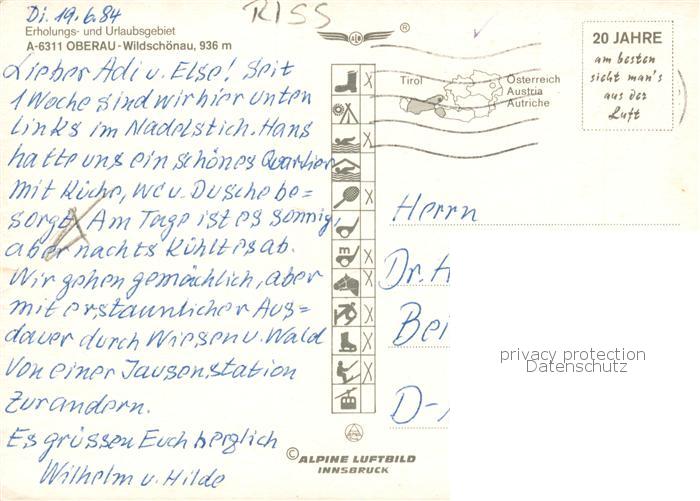 Di. 19.6.84
RISS
Erholungs- und Urlaubsgebiet
A-6311 OBERAU - Wildschönau, 936 m
Lieber Adi u. Else! Seit
1 Woche sind wir hier unten
links im Nadelstich. Hans
hatte uns ein schönes Quartier
mit Küche, WC u. Dusche be=
sorgt. Am Tage ist es sonnig,
aber nachts kühlt es ab.
Wir gehen gemächlich, aber
mit erstaunlicher Aus=
dauer durch Wiesen u. Wald
von einer Jausenstation
zur andern.
Es grüssen Euch herzlich
Wilhelm u. Hilde
®
Tirol
Österreich
Austria
Autriche
m
© ALPINE LUFTBILD
INNSBRUCK
20 JAHRE
am besten
sieht man's
aus der
Luft
Herrn
Dr. H
Bei
D-
privacy protection
Datenschutz